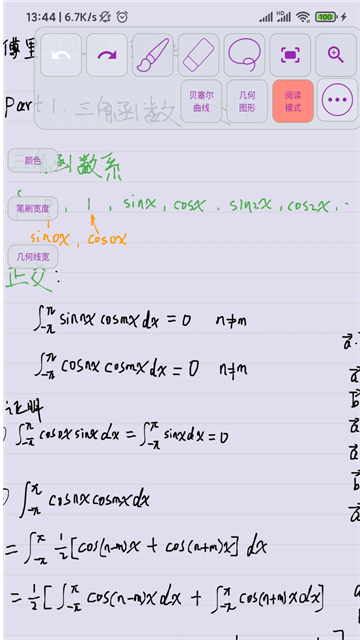 13:44 | 6.7K/s
HD
100
傅里
贝塞尔曲线
几何图形
阅读模式
Part 1. 三角函数
颜色
函数系
笔刷宽度
, 1 , sinx, cosx . sin2x, cos2x, ·
sin0x, cos0x
几何线宽
正交:
∫_{-π}^{π} sinnx cosmx dx = 0 n≠m
∫_{-π}^{π} cosnx cosmx dx = 0 n≠m
证明
) ∫_{-π}^{π} cos0x sinx dx = ∫_{-π}^{π} sinx dx = 0
) ∫_{-π}^{π} cosnx cosmx dx
= ∫_{-π}^{π} 1/2 [cos(n-m)x + cos(n+m)x] dx
= 1/2 [∫_{-π}^{π} cos(n-m)x dx + ∫_{-π}^{π} cos(n+m)x dx]